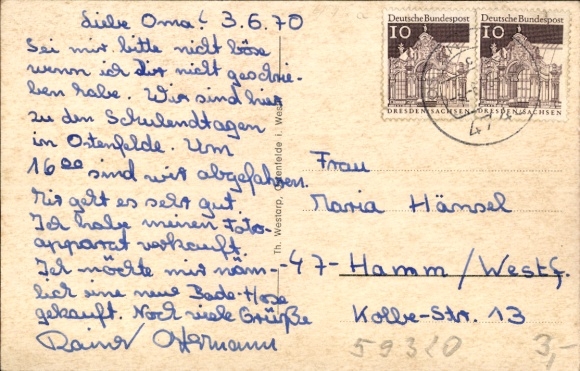 Liebe Oma! 3.6.70
Sei mir bitte nicht böse
wenn ich Dir nicht geschrie-
ben habe. Wir sind hier
zu den Schulendtagen
in Ostenfelde. Um
16⁰⁰ sind wir abgefahren.
Mir geht es sehr gut.
Ich habe meinen Foto-
apparat verkauft.
Ich möchte mir näm-
lich eine neue Bade-Hose
gekauft. Noch viele Grüße
Rainer
Th. Westarp, Ostenfelde i. West
Deutsche Bundespost
10
DRESDEN/SACHSEN
Deutsche Bundespost
10
DRESDEN/SACHSEN
47
Frau
Maria Hänsel
-47-Hamm/Westf.
Kolbe-Str. 13
59320
3,-